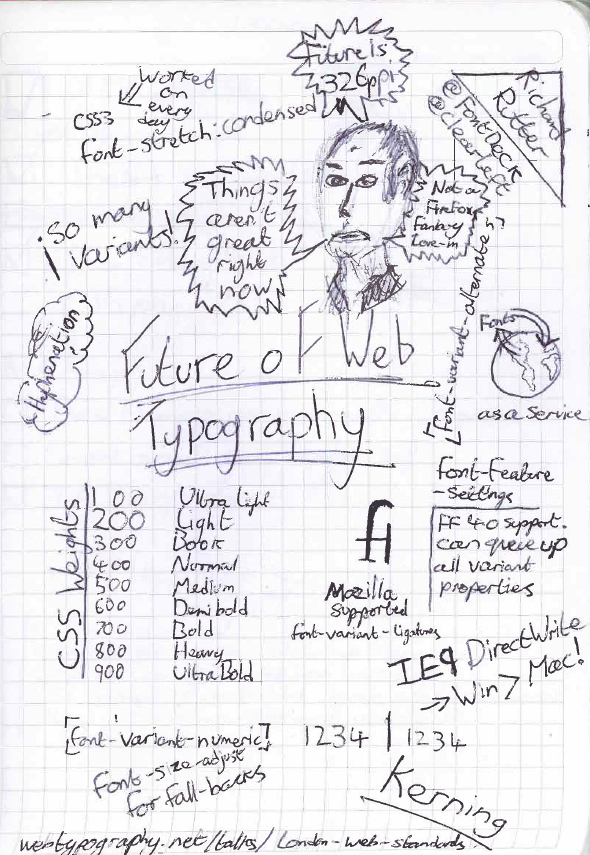 Future is
326ppi
Worked
on
every
day
CSS3
font-stretch: condensed
Richard
Rutter
@FontDeck
@clearleft
Things
aren't
great
right
now
Not a
Firefox
Fantasy
Love-in
¡So many
Variants!
Hyphenation
[font-variant-alternates]
Fonts
as a Service
Future of Web
Typography
CSS Weights
100 Ultra light
200 Light
300 Book
400 Normal
500 Medium
600 Demi bold
700 Bold
800 Heavy
900 Ultra Bold
fi
Mozilla
supported
font-variant-ligatures
font-feature
-settings
FF 4.0 support.
can queue up
all variant
properties
IE9 DirectWrite
→ Win 7 > Mac!
[font-variant-numeric]
1234 | 1234
Font-size-adjust
for fall-backs
Kerning
webtypography.net/talks/london-web-standards